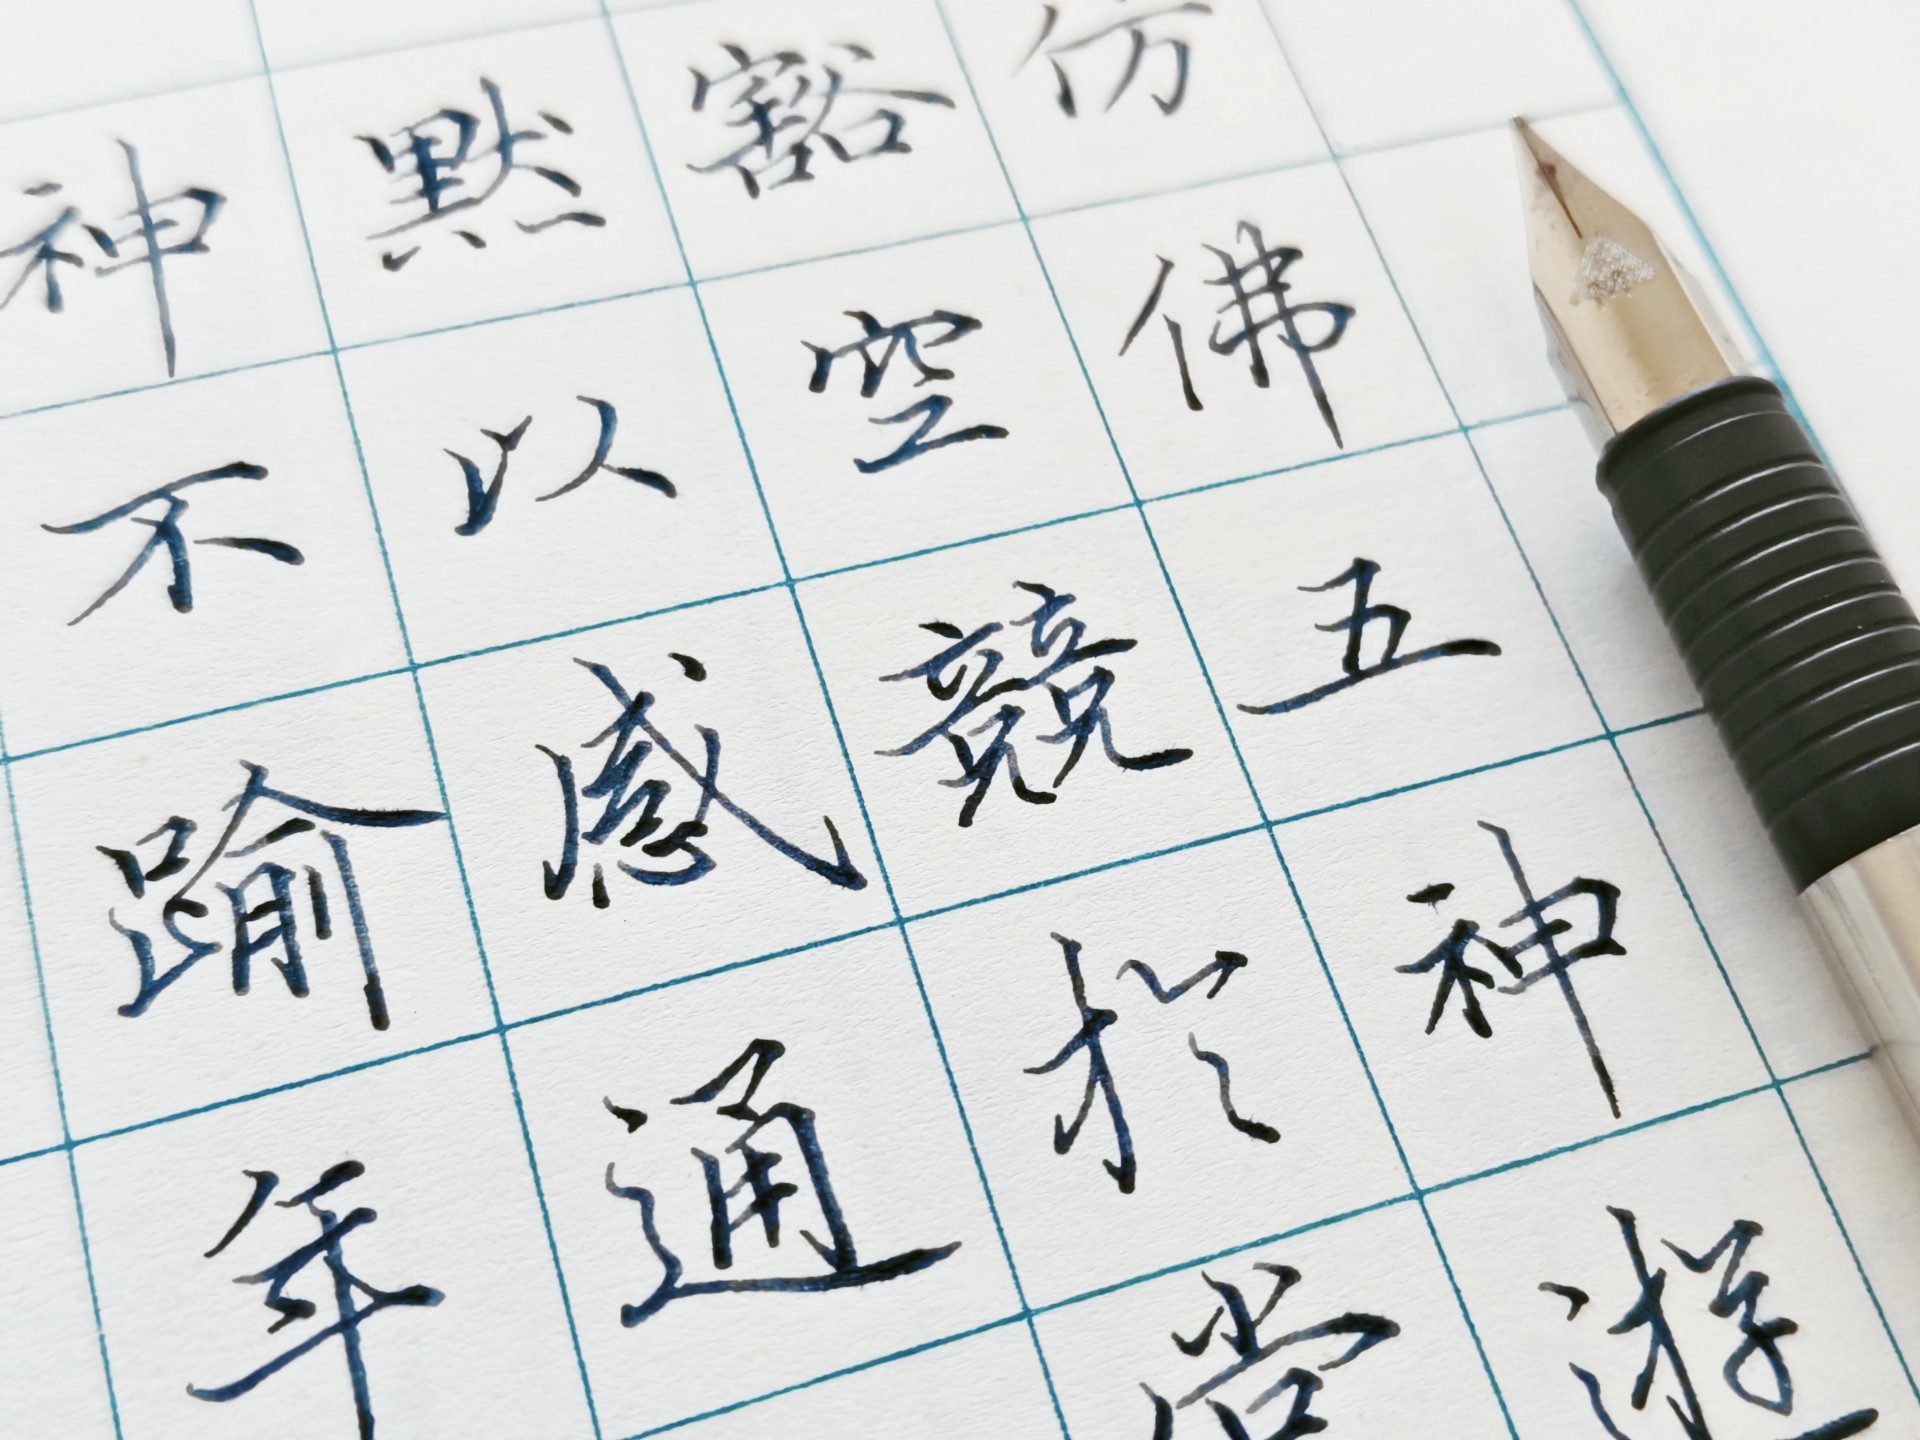 仿佛五神遊
豁空競於
默以感通
神不踰年